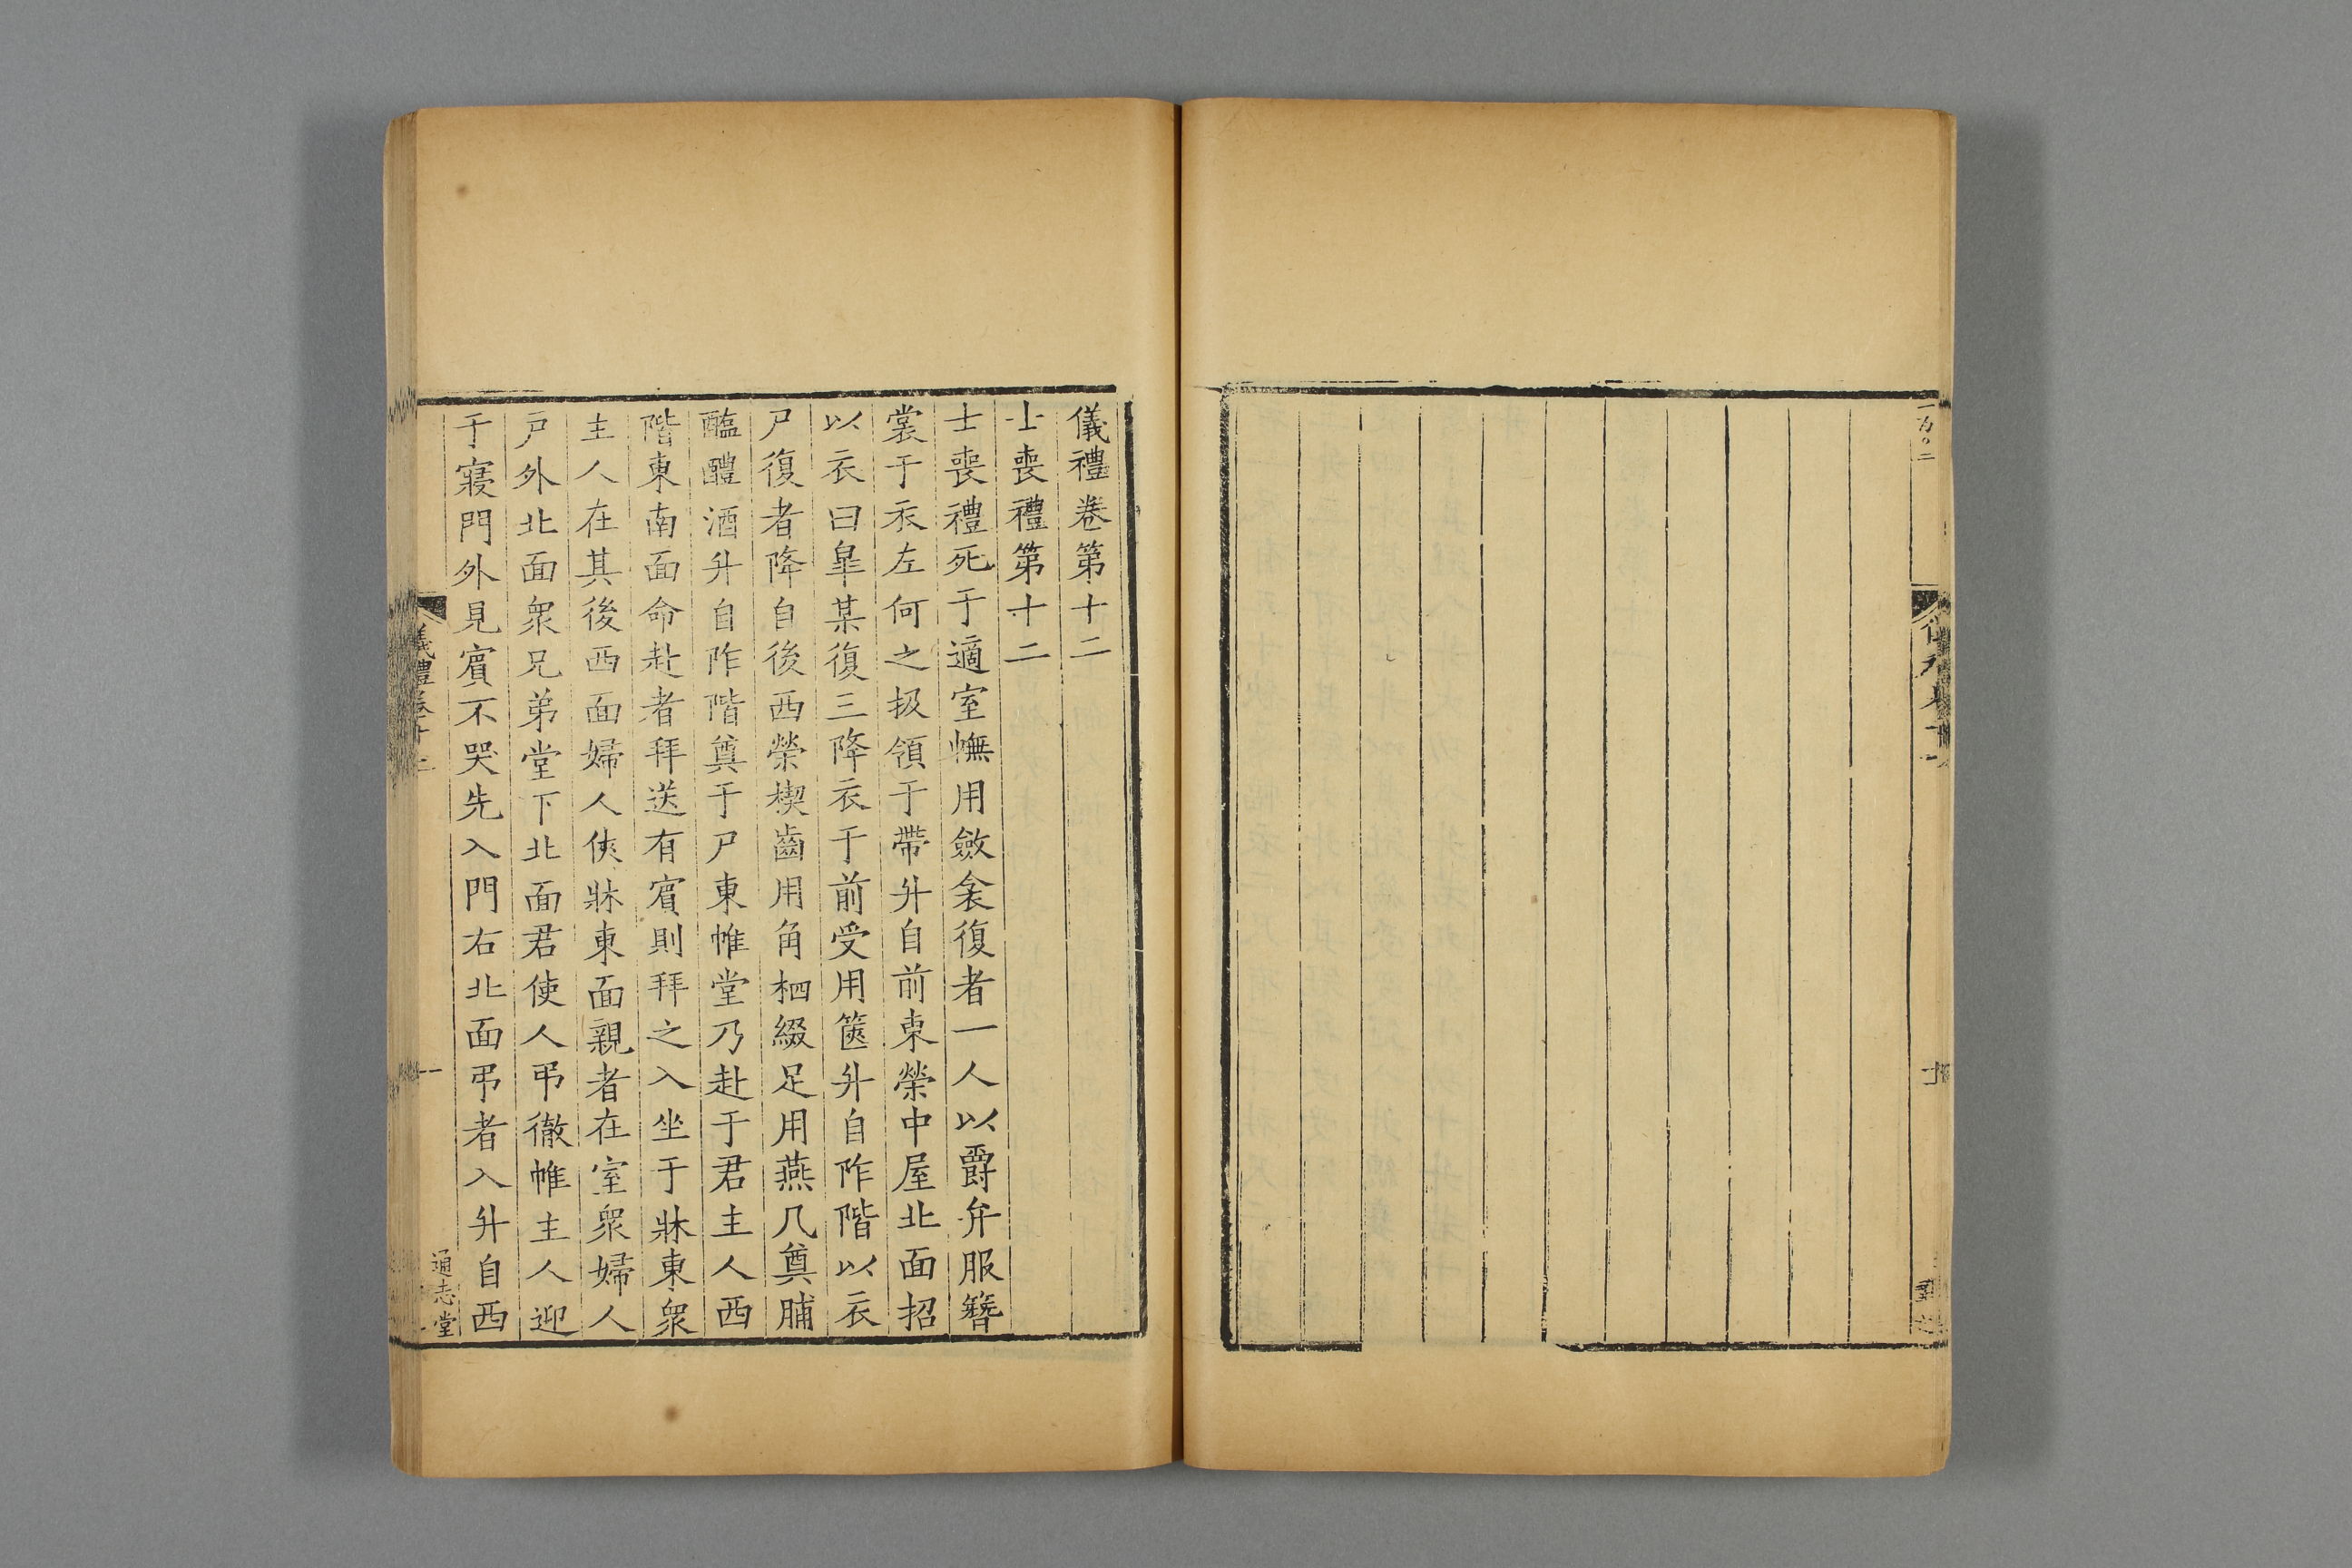 儀禮卷第十二
士喪禮第十二
士喪禮死于適室幠用斂衾復者一人以爵弁服簪
裳于衣左何之扱領于帶升自前東榮中屋北面招
以衣曰皐某復三降衣于前受用篋升自阼階以衣
尸復者降自後西榮楔齒用角柶綴足用燕几奠脯
醢醴酒升自阼階奠于尸東帷堂乃赴于君主人西
階東南面命赴者拜送有賓則拜之入坐于牀東衆
主人在其後西面婦人俠牀東面親者在室衆婦人
户外北面衆兄弟堂下北面君使人弔徹帷主人迎
于寢門外見賓不哭先入門右北面弔者入升自西
儀禮卷十二
一
通志堂